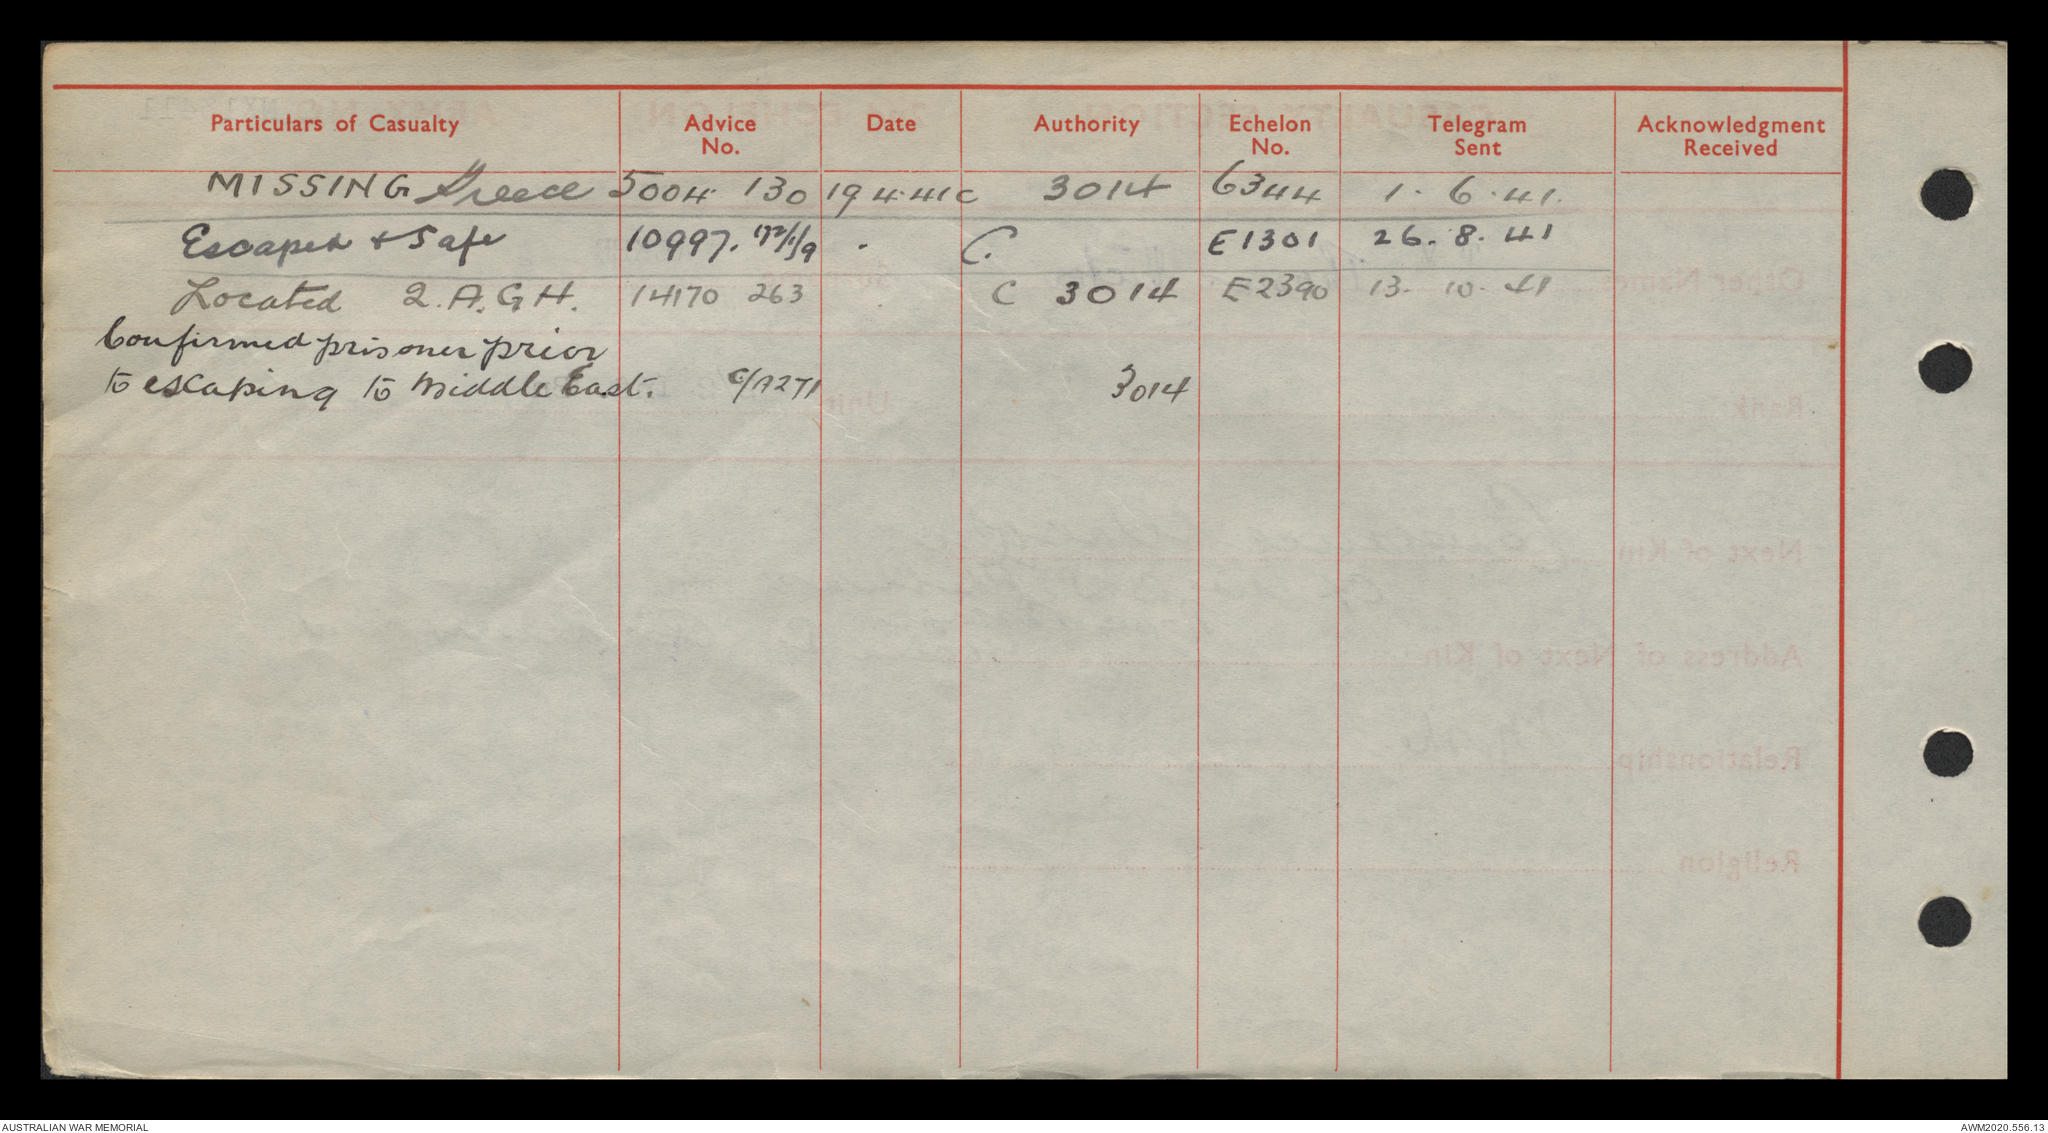 Particulars of Casualty Advice No. Date Authority Echelon No. Telegram Sent Acknowledgment Received
MISSING Greece 5004 130 19 4.41 C 3014 6344 1. 6. 41.
Escaped & Safe 10997. . C. E1301 26. 8. 41
Located 2.A.G.H. 14170 263 C 3014 E2390 13. 10. 41
Confirmed prisoner prior
to escaping to Middle East. C/A271 3014
AUSTRALIAN WAR MEMORIAL
AWM2020.556.13